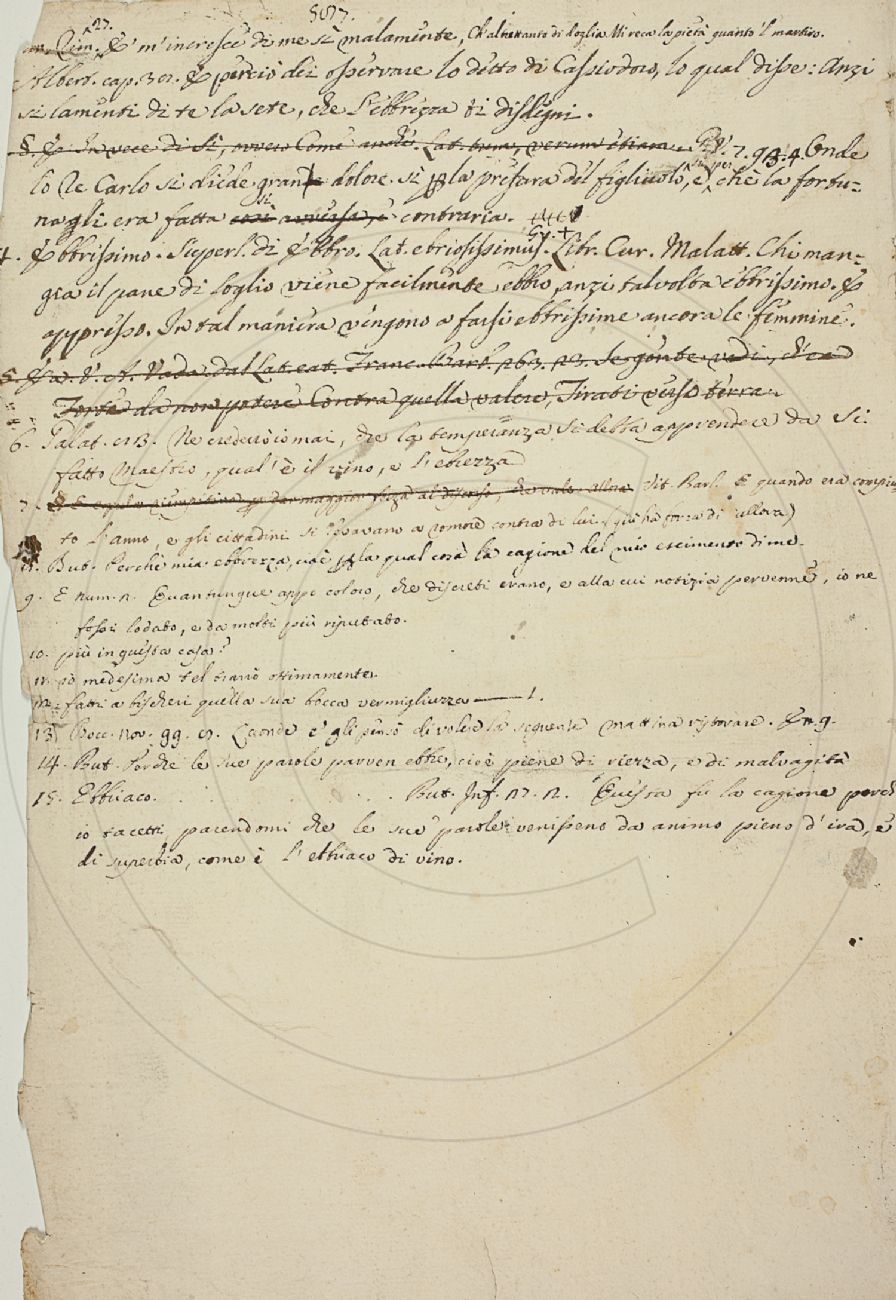 5077.
Rim. 27. E' m'incresce di me sì malamente, Ch'altrettanto di doglia Mi reca la pietà quanto 'l martiro.
Albert. cap. 30. E perciò dei osservare lo detto di Cassiodoro, lo qual disse: Anzi
si lamenti di te la sete, che l'ebbrezza ti disdegni.
§. E In vece di Sì, ovvero Come anche. Lat. tum, verum etiam. 7. 93. 4. Onde
lo Re Carlo si diede gran dolore sì per la presura del figliuolo, e sì perchè la fortu-
na gli era fatta così avversa, e contraria.
4. Ebbrissimo. Superl. di Ebbro. Lat. ebriosissimus. Libr. Cur. Malatt. Chi man-
gia il pane di loglio viene facilmente ebbro, anzi talvolta ebbrissimo. E
appresso. In tal maniera vengono a farsi ebbrissime ancora le femmine.
5. Lat. Franc. Barb. 263. 23. Se gente vedi, ch'ea
Forte da non potere Contra quella valere, Tirati verso terra.
6. Palat. 2. 13. Ne crederrò io mai, che la temperanza si debba apprendere da sì
fatto Maestro, qual'è il vino, e l'ebrezza
7. Vit. Barl. E quando era compiu-
to l'anno, e gli cittadini si levavano a romore contra di lui. (qui ha forza di allora)
8. But. Perchè mia ebbrezza, cioè per la qual cosa la cagione del mio escimento di me.
9. E num. 2. Quantunque appo coloro, che discreti erano, e alla cui notizia pervenne, io ne
fossi lodato, e da molti più riputato.
10. più in questa casa?
11. ed medesima tel trarrò ottimamente.
12. fatti a bischeri quella sua bocca vermigliuzza —— 1.
13. Bocc. nov. 99. 9. Laonde e' gli pensò di volere la seguente mattina ristorare. E n. 9.
14. But. Perchè le sue parole parven ebbre, cioè piene di rezza, e di malvagità
15. Ebbriaco. . . . . . But. Inf. 27. 2. Questa fu la cagione perch'
io tacetti, parendomi che le sue parole venisseno da animo pieno d'ira, e
di superbia, come è l'ebbriaco di vino.